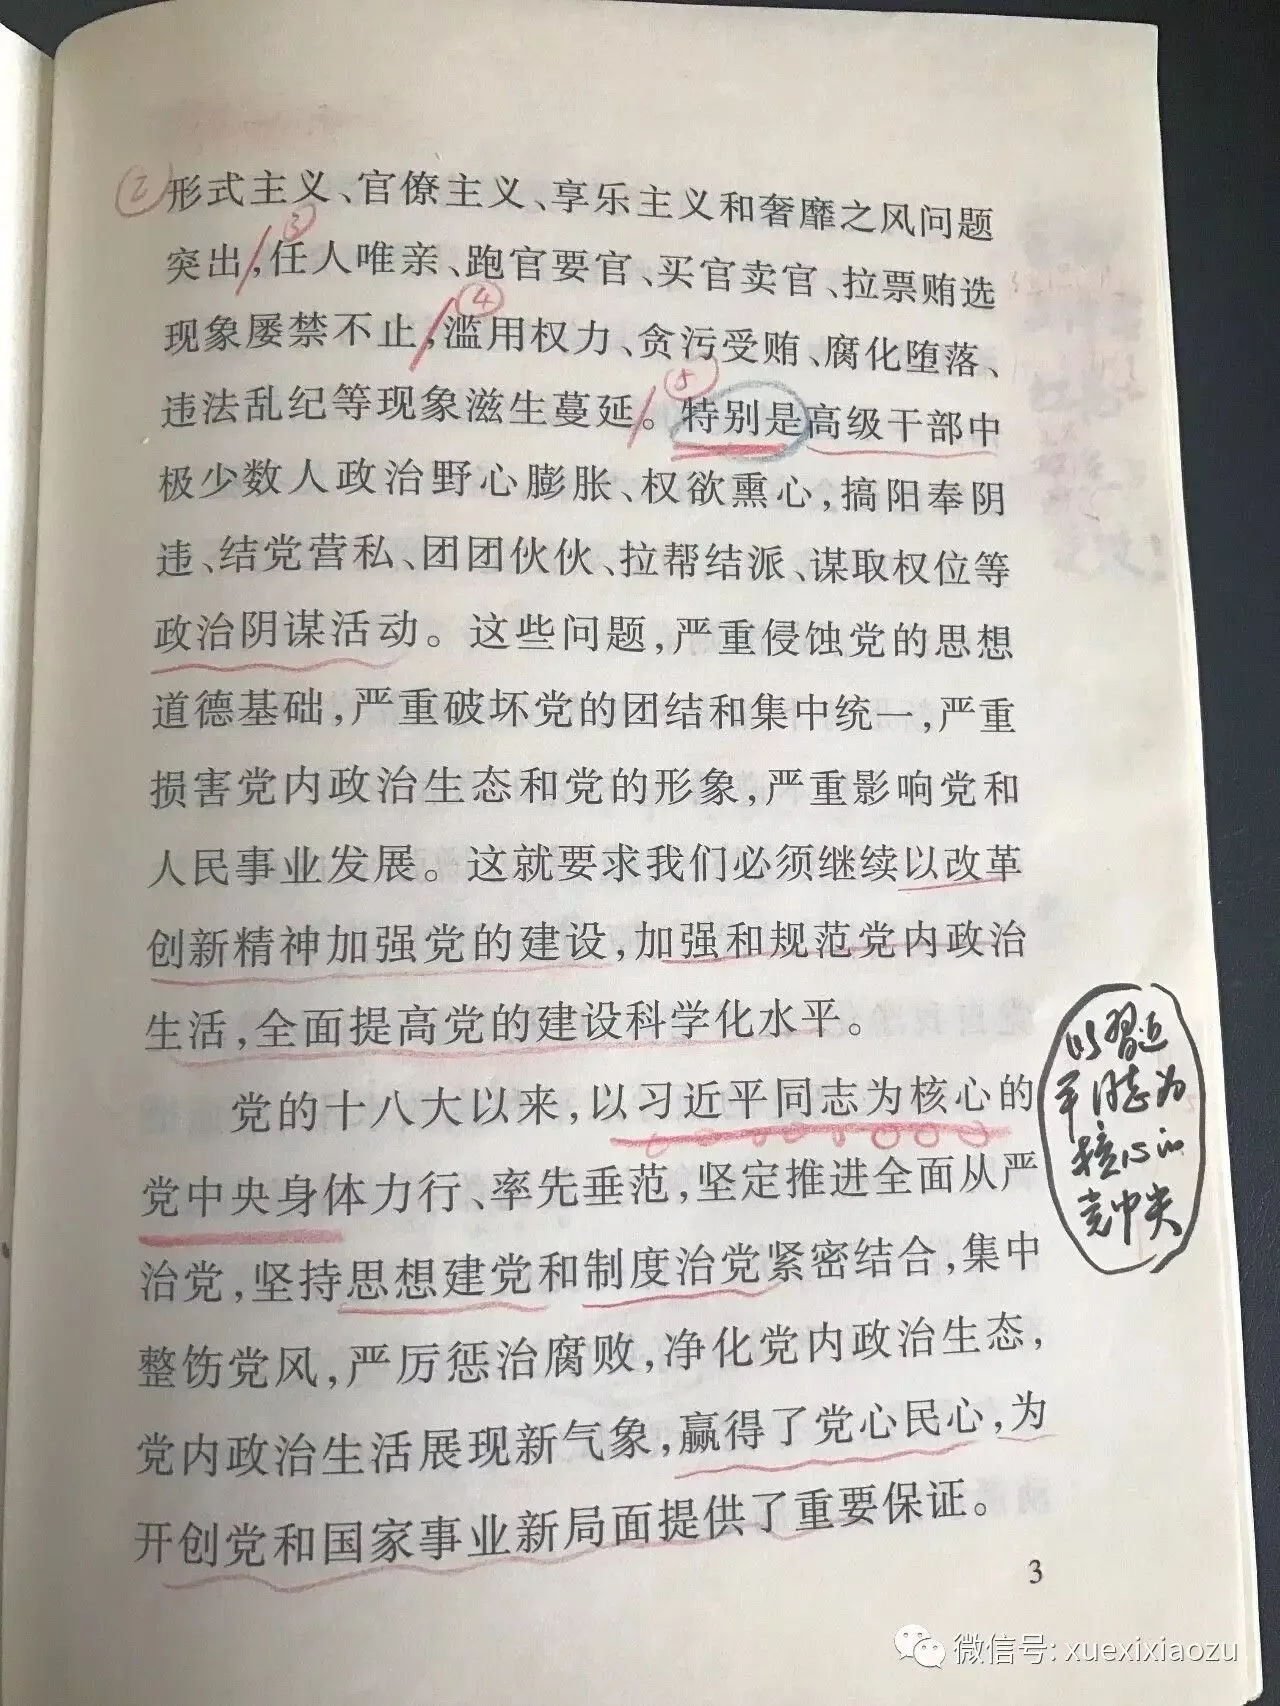 ②形式主义、官僚主义、享乐主义和奢靡之风问题
③
突出，任人唯亲、跑官要官、买官卖官、拉票贿选
④
现象屡禁不止，滥用权力、贪污受贿、腐化堕落、
⑤
违法乱纪等现象滋生蔓延。特别是高级干部中
极少数人政治野心膨胀、权欲熏心，搞阳奉阴
违、结党营私、团团伙伙、拉帮结派、谋取权位等
政治阴谋活动。这些问题，严重侵蚀党的思想
道德基础，严重破坏党的团结和集中统一，严重
损害党内政治生态和党的形象，严重影响党和
人民事业发展。这就要求我们必须继续以改革
创新精神加强党的建设，加强和规范党内政治
生活，全面提高党的建设科学化水平。
党的十八大以来，以习近平同志为核心的
党中央身体力行、率先垂范，坚定推进全面从严
治党，坚持思想建党和制度治党紧密结合，集中
整饬党风，严厉惩治腐败，净化党内政治生态，
党内政治生活展现新气象，赢得了党心民心，为
开创党和国家事业新局面提供了重要保证。
以習近
平同志为
核心的
党中央
3
微信号: xuexixiaozu